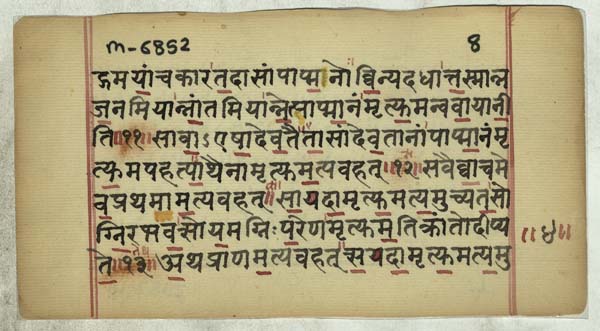 m-6852 8
द्गमयांचकारतदासांपाप्मनोविन्यदधात्तस्मान्न
जनमियान्नांतमियान्नेत्पाप्मानंमृत्युमन्ववायानी
ति ॥११॥ सावाऽएषादेवतैतासांदेवतानांपाप्मानंमृ
त्युमपहत्याथैनामृत्युमत्यवहत् ॥१२॥ सवैवाचमे
वप्रथमामत्यवहत्॥सायदामृत्युमत्यमुच्यतसो
ग्निरभवत्सोयमग्निःपरेणमृत्युमतिक्रांतोदीप्य
ते ॥१३॥ अथप्राणमत्यवहत्सयदामृत्युमत्यमु
॥४॥